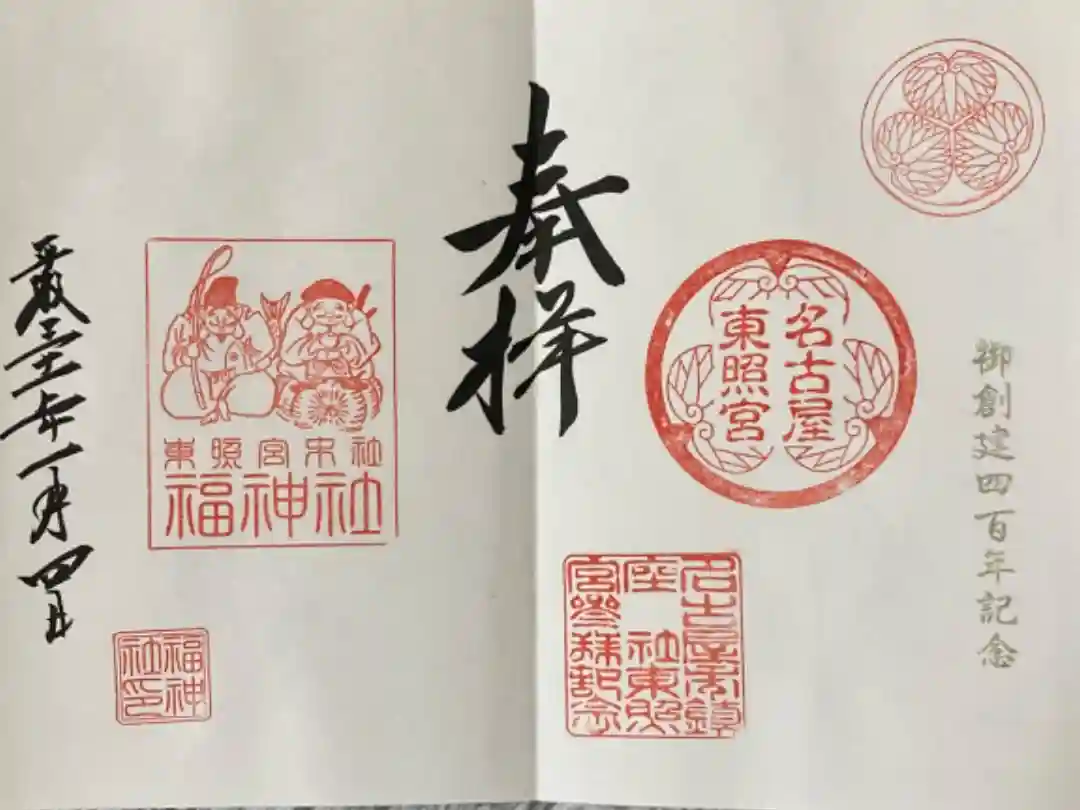 御創建四百年記念
名古屋
東照宮
名古屋市鎮
座 社東照
宮参拝記念
奉拝
東照宮末社
福神社
福神
社印
平成三十一年一月四日